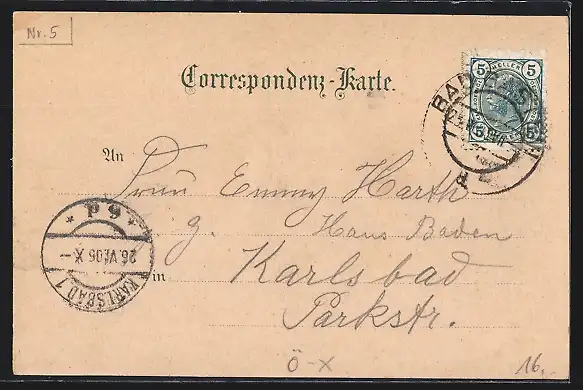 Nr. 5
5 HELLER 5
5 5
Correspondenz-Karte.
An
Frau Emmy Harth
z. Haus Baden
in Karlsbad
Parkstr.
KARLSBAD 1
26.VI.06 X
* P 9 *
BAD
Ö-X
16,-